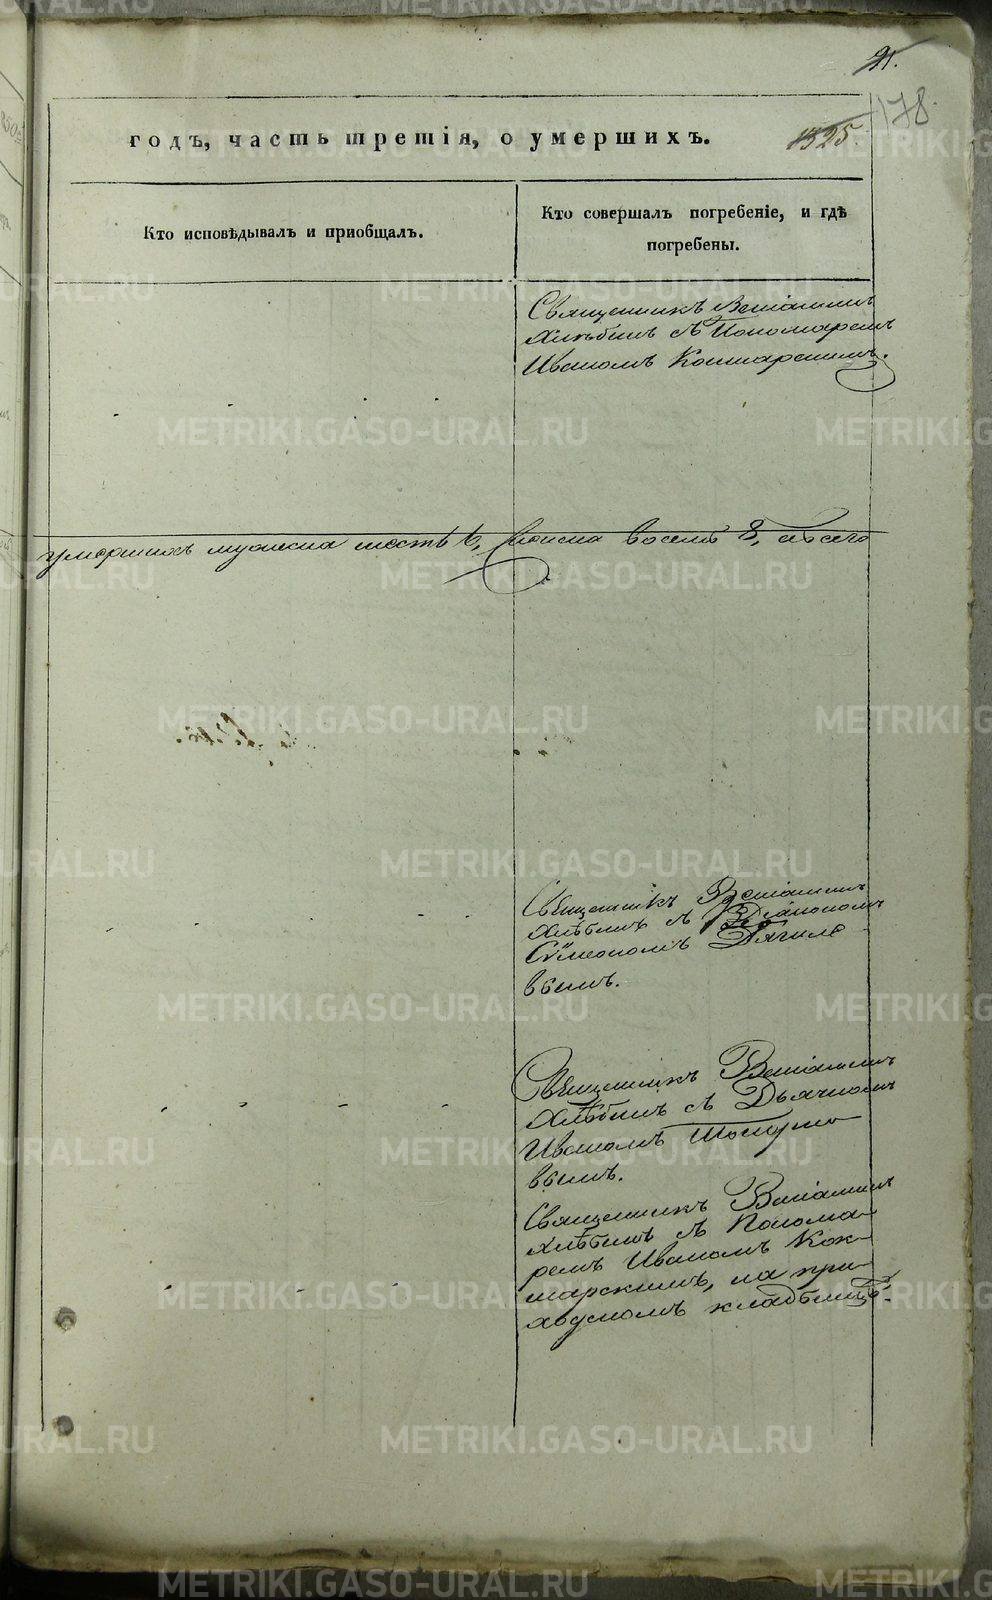 21.
178.
1325.
годъ, часть третія, о умершихъ.
Кто исповѣдывалъ и пріобщалъ.
Кто совершалъ погребеніе, и гдѣ
погребены.
Священникъ Веніаминъ
Хлѣбинъ съ Пономаремъ
Иваномъ
умершихъ мужеска шесть 6, женска восемь 8, а всего
Священникъ Веніаминъ
Хлѣбинъ съ Діакономъ
Сѵмеономъ Дягиле
вымъ.
Священникъ Веніаминъ
Хлѣбинъ съ Дьячкомъ
Иваномъ
вымъ.
Священникъ Веніаминъ
Хлѣбинъ съ Понома-
ремъ Иваномъ Кок-
шарскимъ, на при-
ходскомъ кладбищѣ.
METRIKI.GASO-URAL.RU